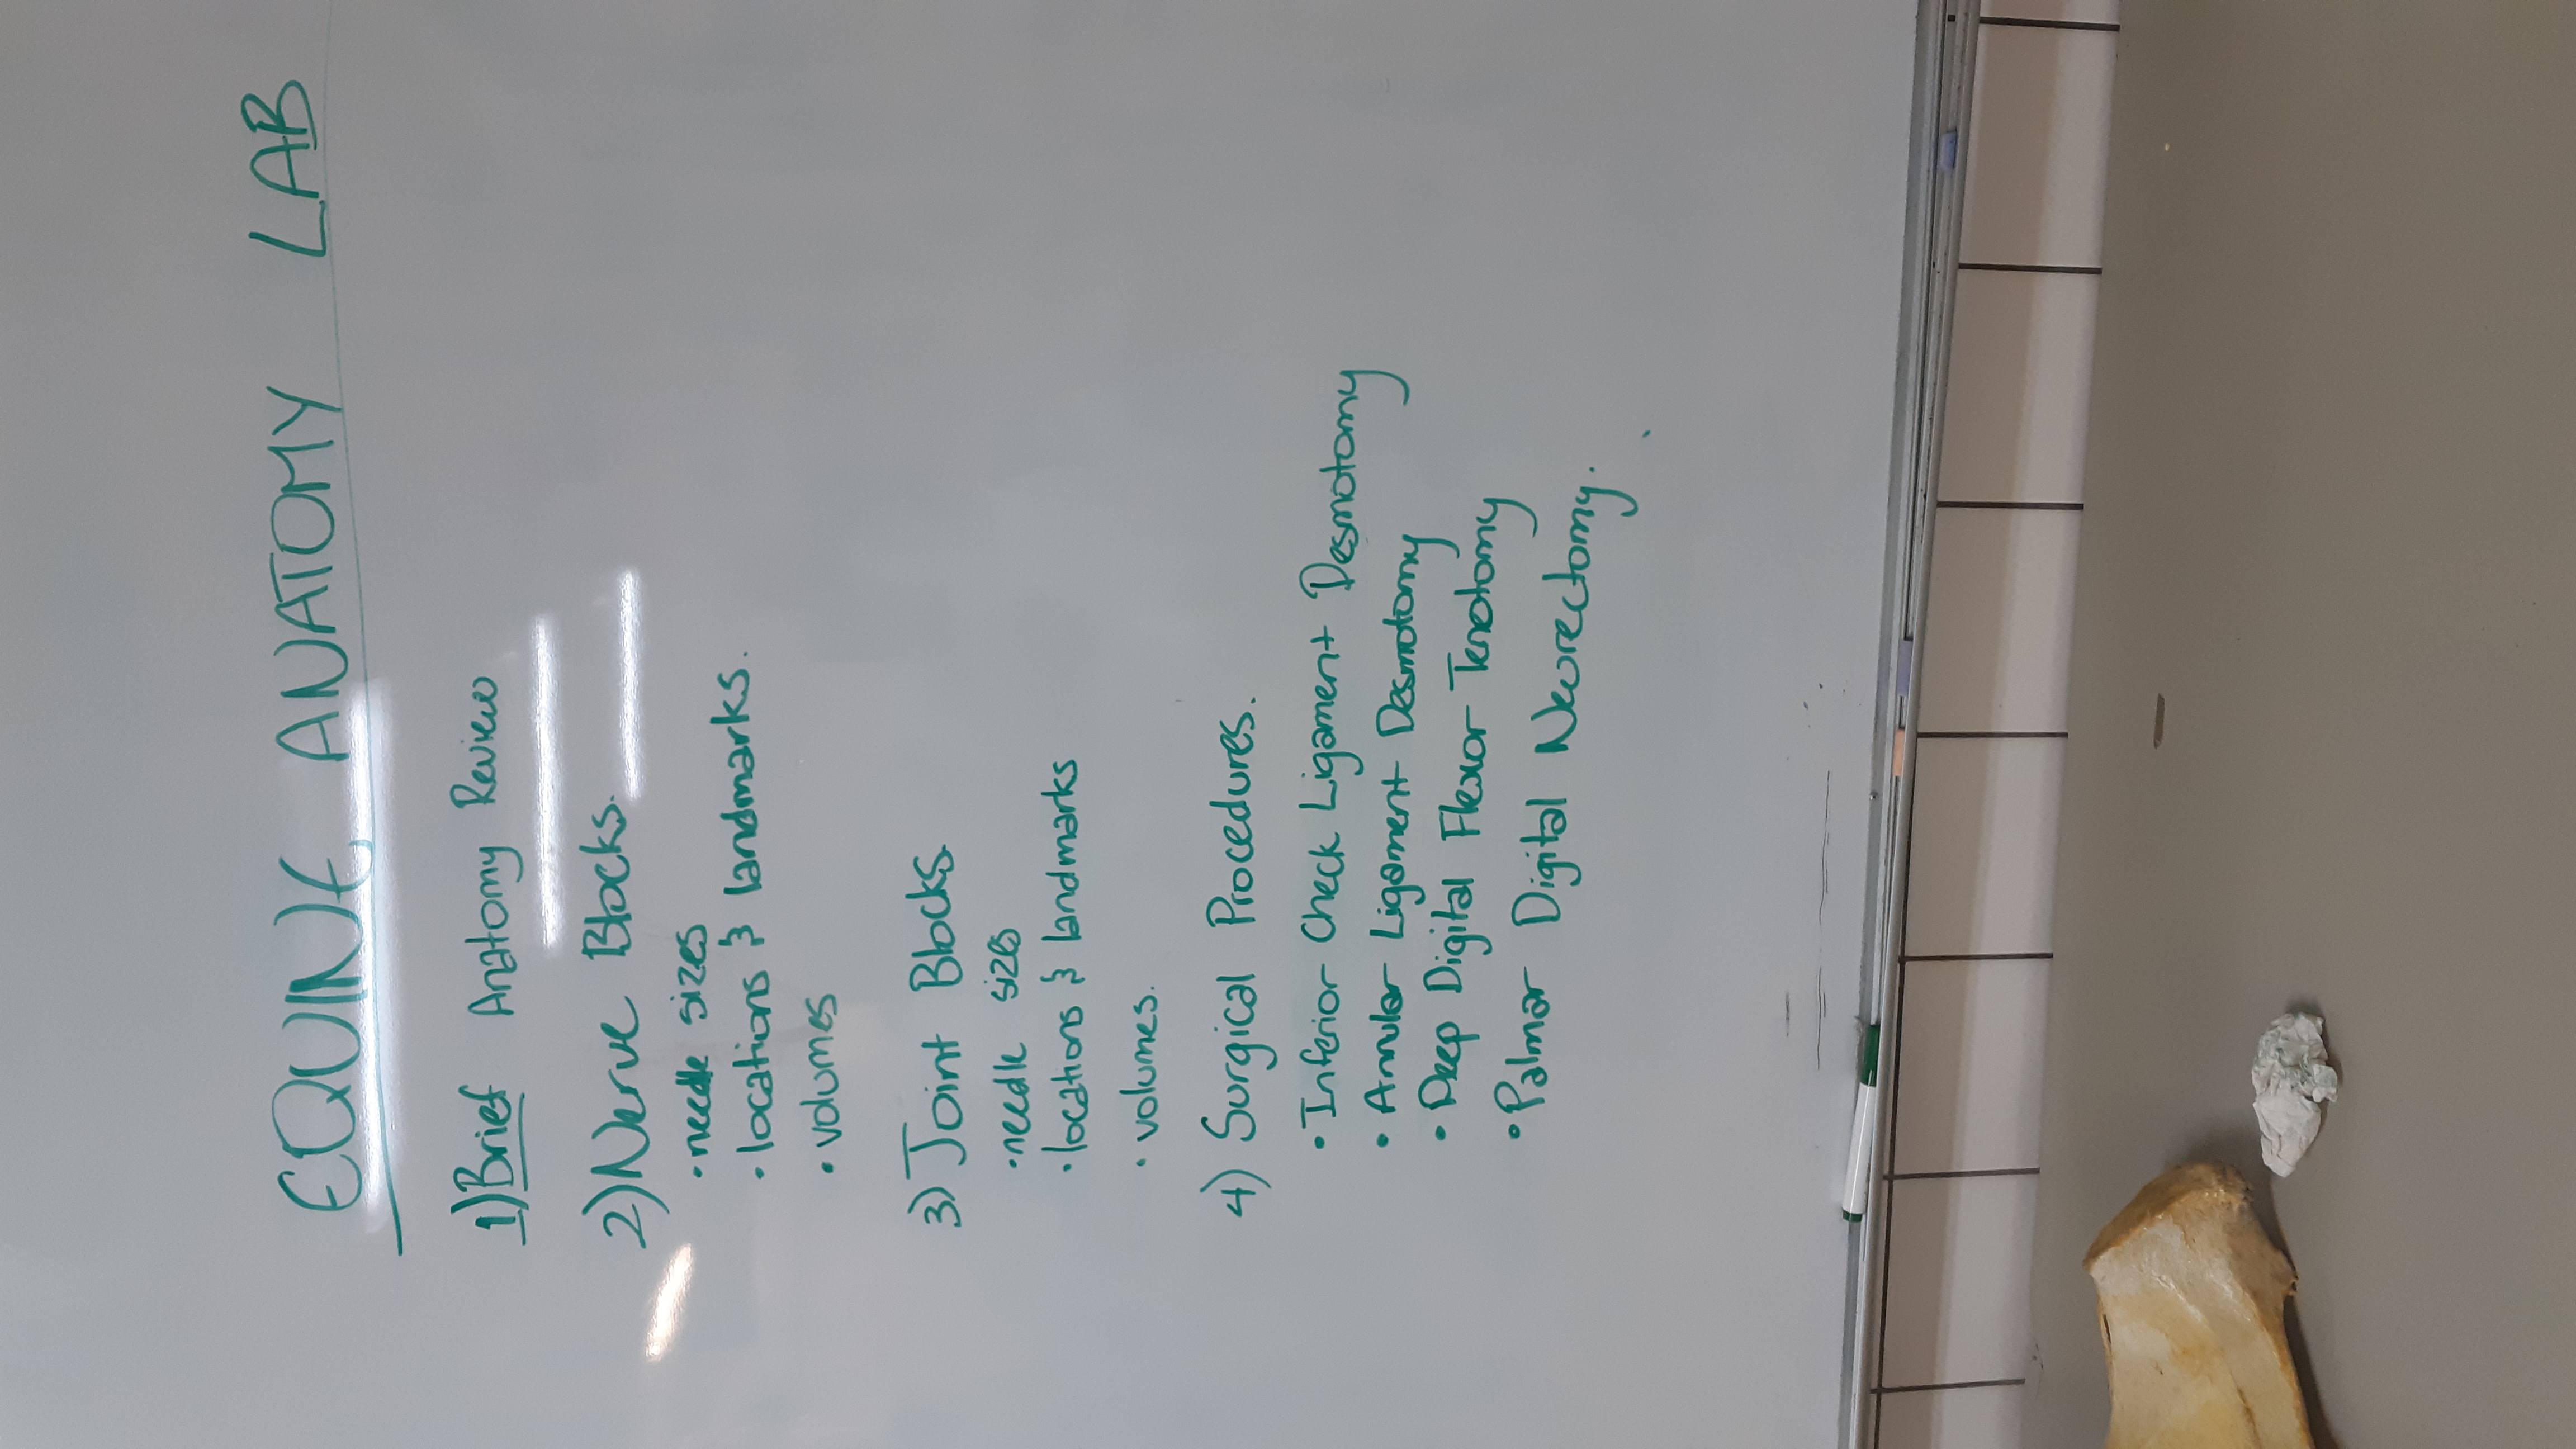 EQUINE ANATOMY LAB
1) Brief Anatomy Review
2) Nerve Blocks.
• needle sizes
• locations & landmarks.
• volumes
3) Joint Blocks.
• needle sizes
• locations & landmarks
• volumes.
4) Surgical Procedures.
• Inferior Check Ligament Desmotomy
• Annular Ligament Desmotomy
• Deep Digital Flexor Tenotomy
• Palmar Digital Neurectomy.